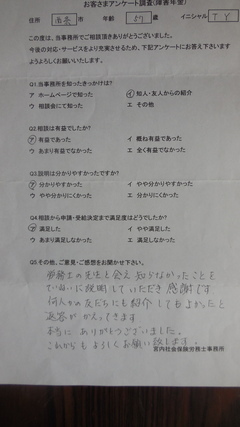 お客さまアンケート調査(障害年金)
住所 年齢 57 歳 イニシャル T Y
この度は、当事務所でご相談頂きありがとうございました。
今後の対応・サービスをより充実させるため、下記アンケートにお答え下さいます
ようよろしくお願いいたします。
Q1.当事務所を知ったきっかけは?
ア ホームページで知った イ 知人・友人からの紹介
ウ 相談会にて知った エ その他
Q2.相談は有益でしたか?
ア 有益であった イ 概ね有益であった
ウ あまり有益でなかった エ 全く有益でなかった
Q3.説明は分かりやすかったですか?
ア 分かりやすかった イ やや分かりやすかった
ウ やや分かりにくかった エ 分かりにくかった
Q4.相談から申請・受給決定まで満足度はどうでしたか?
ア 満足した イ やや満足した
ウ あまり満足しなかった エ 満足しなかった
Q5.その他、ご意見・ご感想をお聞かせ下さい。
労務士の先生と会え 知らなかったことを
ていねいに説明していただき 感謝です
何人かの友だちにも紹介してもよかったと
返答が かえってきます
本当に ありがとうございました。
これからも よろしくお願い致します。
宮内社会保険労務士事務所